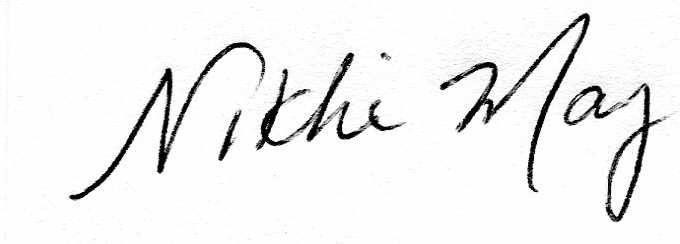 Nikki May